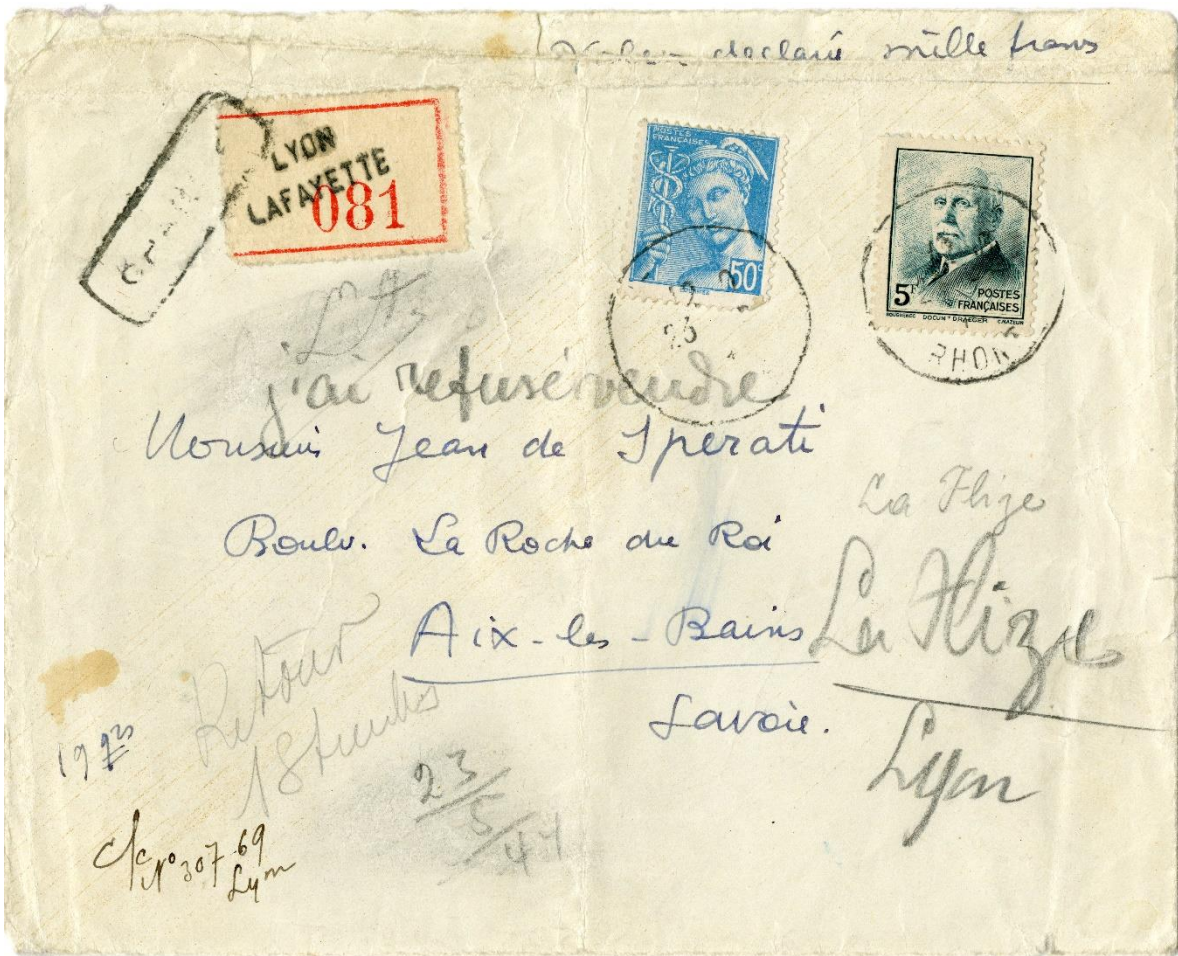 declaré mille francs
LYON
LAFAYETTE
081
POSTES
FRANÇAISES
50c
5F
POSTES
FRANÇAISES
RHON
j'ai refusé vendre
Monsieur Jean de Sperati
Boulv. La Roche du Roi
Aix-les-Bains
Savoie.
La Flize
La Flize
Lyon
Retour
18 timbres
23/5/47
19
c/c N° 307-69
Lyon